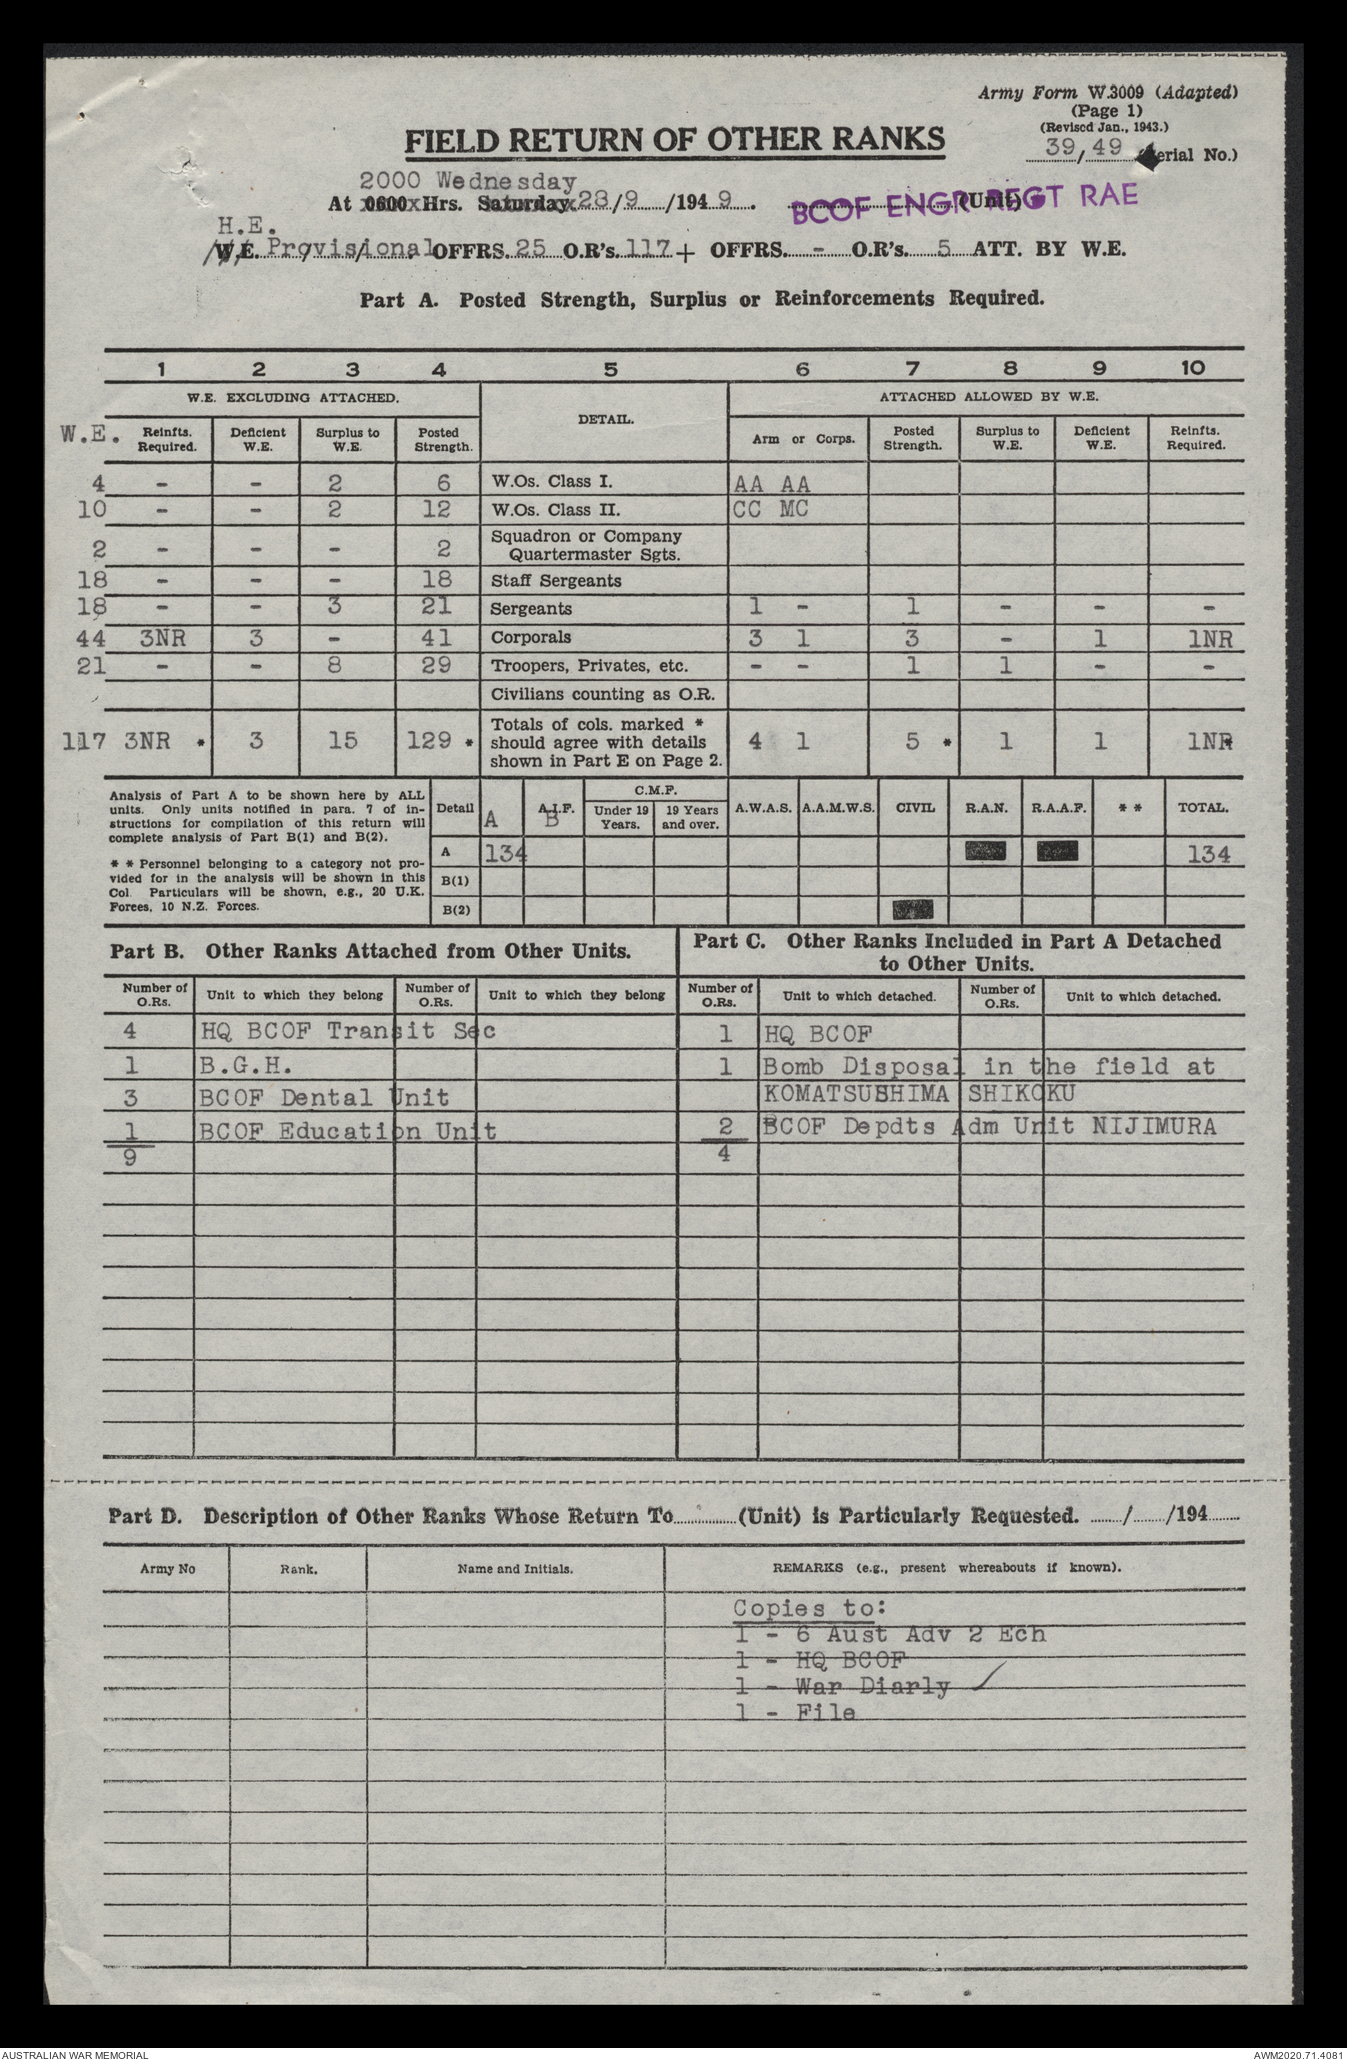 Army Form W.3009 (Adapted)
(Page 1)
(Revised Jan., 1943.)
39/49 (Serial No.)
FIELD RETURN OF OTHER RANKS
2000 Wednesday
At 0600x Hrs. Saturdayx 28/9/1949. BCOF ENGR REGT RAE (Unit)
H.E.
W.E. Provisional OFFRS. 25 O.R's. 117 + OFFRS. - O.R's. 5 ATT. BY W.E.
Part A. Posted Strength, Surplus or Reinforcements Required.
1 2 3 4 5 6 7 8 9 10
W.E. EXCLUDING ATTACHED. DETAIL. ATTACHED ALLOWED BY W.E.
W.E. Reinfts. Required. Deficient W.E. Surplus to W.E. Posted Strength. Arm or Corps. Posted Strength. Surplus to W.E. Deficient W.E. Reinfts. Required.
4 - - 2 6 W.Os. Class I. AA AA
10 - - 2 12 W.Os. Class II. CC MC
2 - - - 2 Squadron or Company Quartermaster Sgts.
18 - - - 18 Staff Sergeants
18 - - 3 21 Sergeants 1 - 1 - - -
44 3NR 3 - 41 Corporals 3 1 3 - 1 1NR
21 - - 8 29 Troopers, Privates, etc. - - 1 1 - -
Civilians counting as O.R.
117 3NR * 3 15 129 * Totals of cols. marked * should agree with details shown in Part E on Page 2. 4 1 5 * 1 1 1NR *
Analysis of Part A to be shown here by ALL
units. Only units notified in para. 7 of in-
structions for compilation of this return will
complete analysis of Part B(1) and B(2).
* * Personnel belonging to a category not pro-
vided for in the analysis will be shown in this
Col. Particulars will be shown, e.g., 20 U.K.
Forces, 10 N.Z. Forces.
Detail A A.I.F. B C.M.F. Under 19 Years. 19 Years and over. A.W.A.S. A.A.M.W.S. CIVIL R.A.N. R.A.A.F. * * TOTAL.
A 134 134
B(1)
B(2)
Part B. Other Ranks Attached from Other Units.
Number of O.Rs. Unit to which they belong Number of O.Rs. Unit to which they belong
4 HQ BCOF Transit Sec
1 B.G.H.
3 BCOF Dental Unit
1 BCOF Education Unit
9
Part C. Other Ranks Included in Part A Detached
to Other Units.
Number of O.Rs. Unit to which detached. Number of O.Rs. Unit to which detached.
1 HQ BCOF
1 Bomb Disposal in the field at
KOMATSUSHIMA SHIKOKU
2 BCOF Depdts Adm Unit NIJIMURA
4
Part D. Description of Other Ranks Whose Return To (Unit) is Particularly Requested. / /194
Army No Rank. Name and Initials. REMARKS (e.g., present whereabouts if known).
Copies to:
1 - 6 Aust Adv 2 Ech
1 - HQ BCOF
1 - War Diarly
1 - File
AUSTRALIAN WAR MEMORIAL AWM2020.71.4081